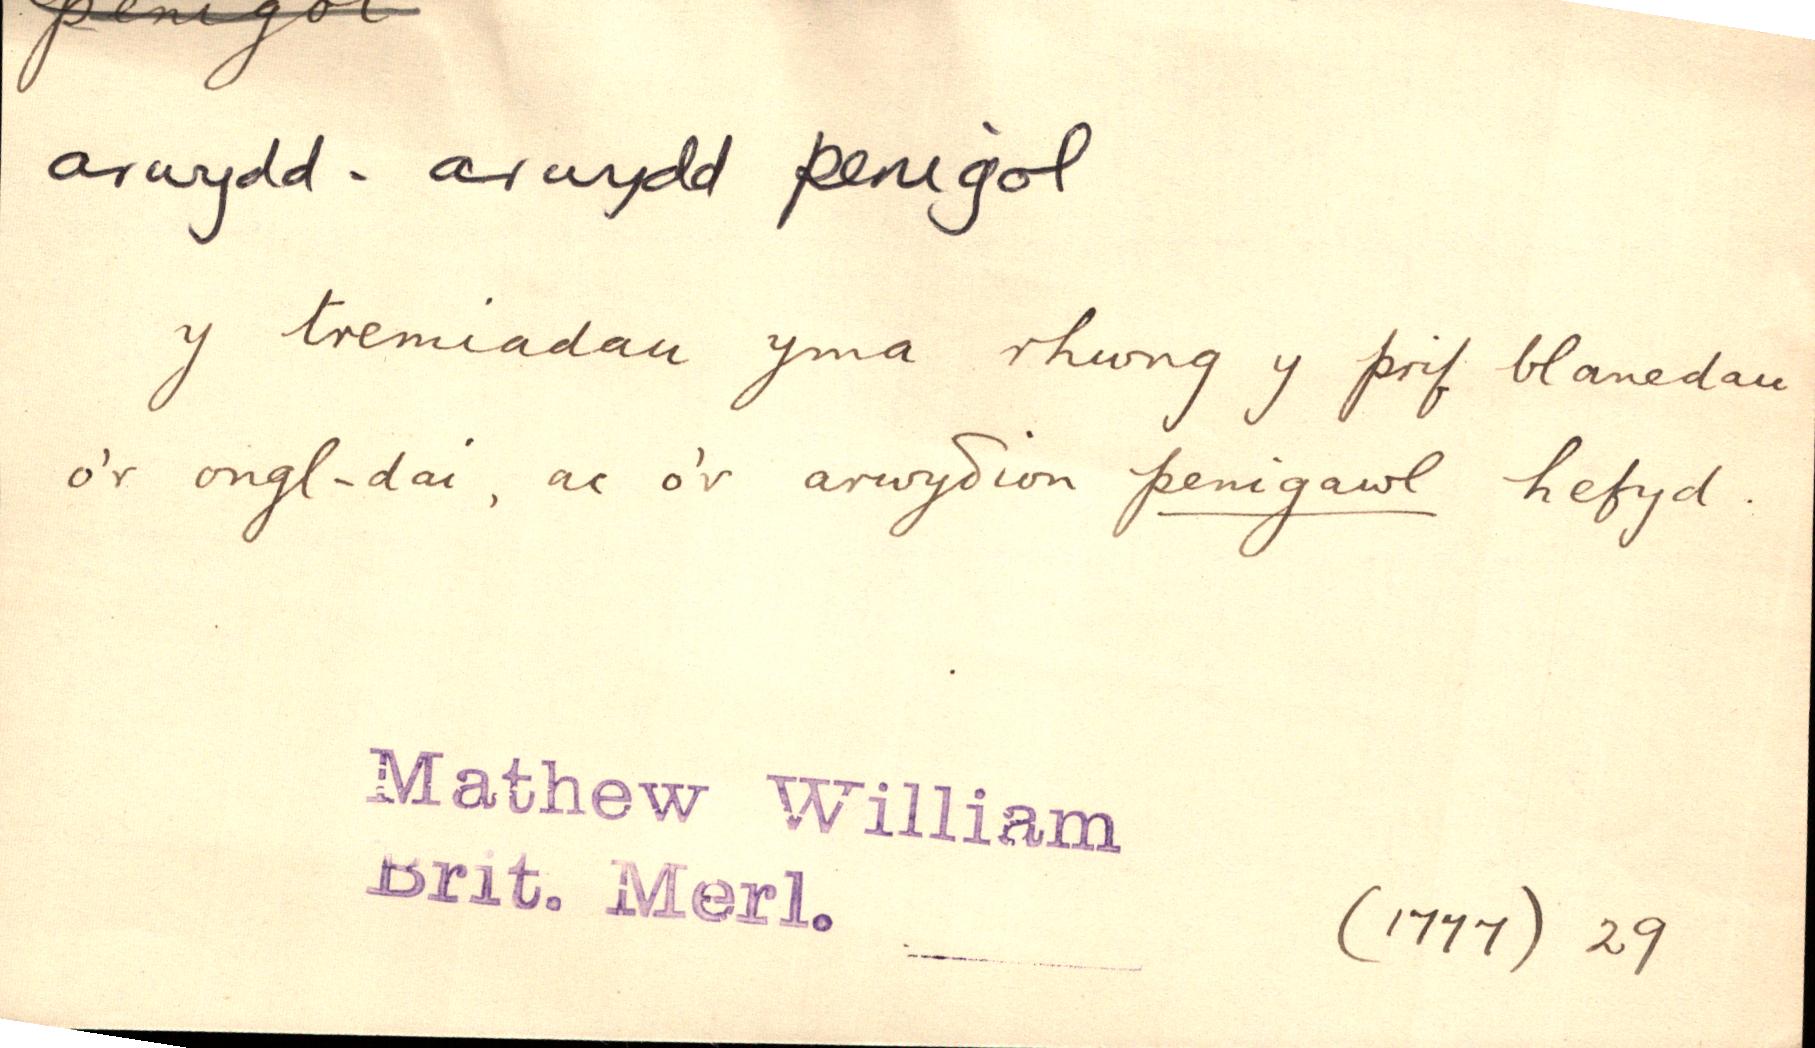 penigol
arwydd - arwydd penigol
y tremiadau yma rhwng y prif blanedau
o'r ongl-dai, ac o'r arwyδion penigawl hefyd.
Mathew William
Brit. Merl.
(1777) 29